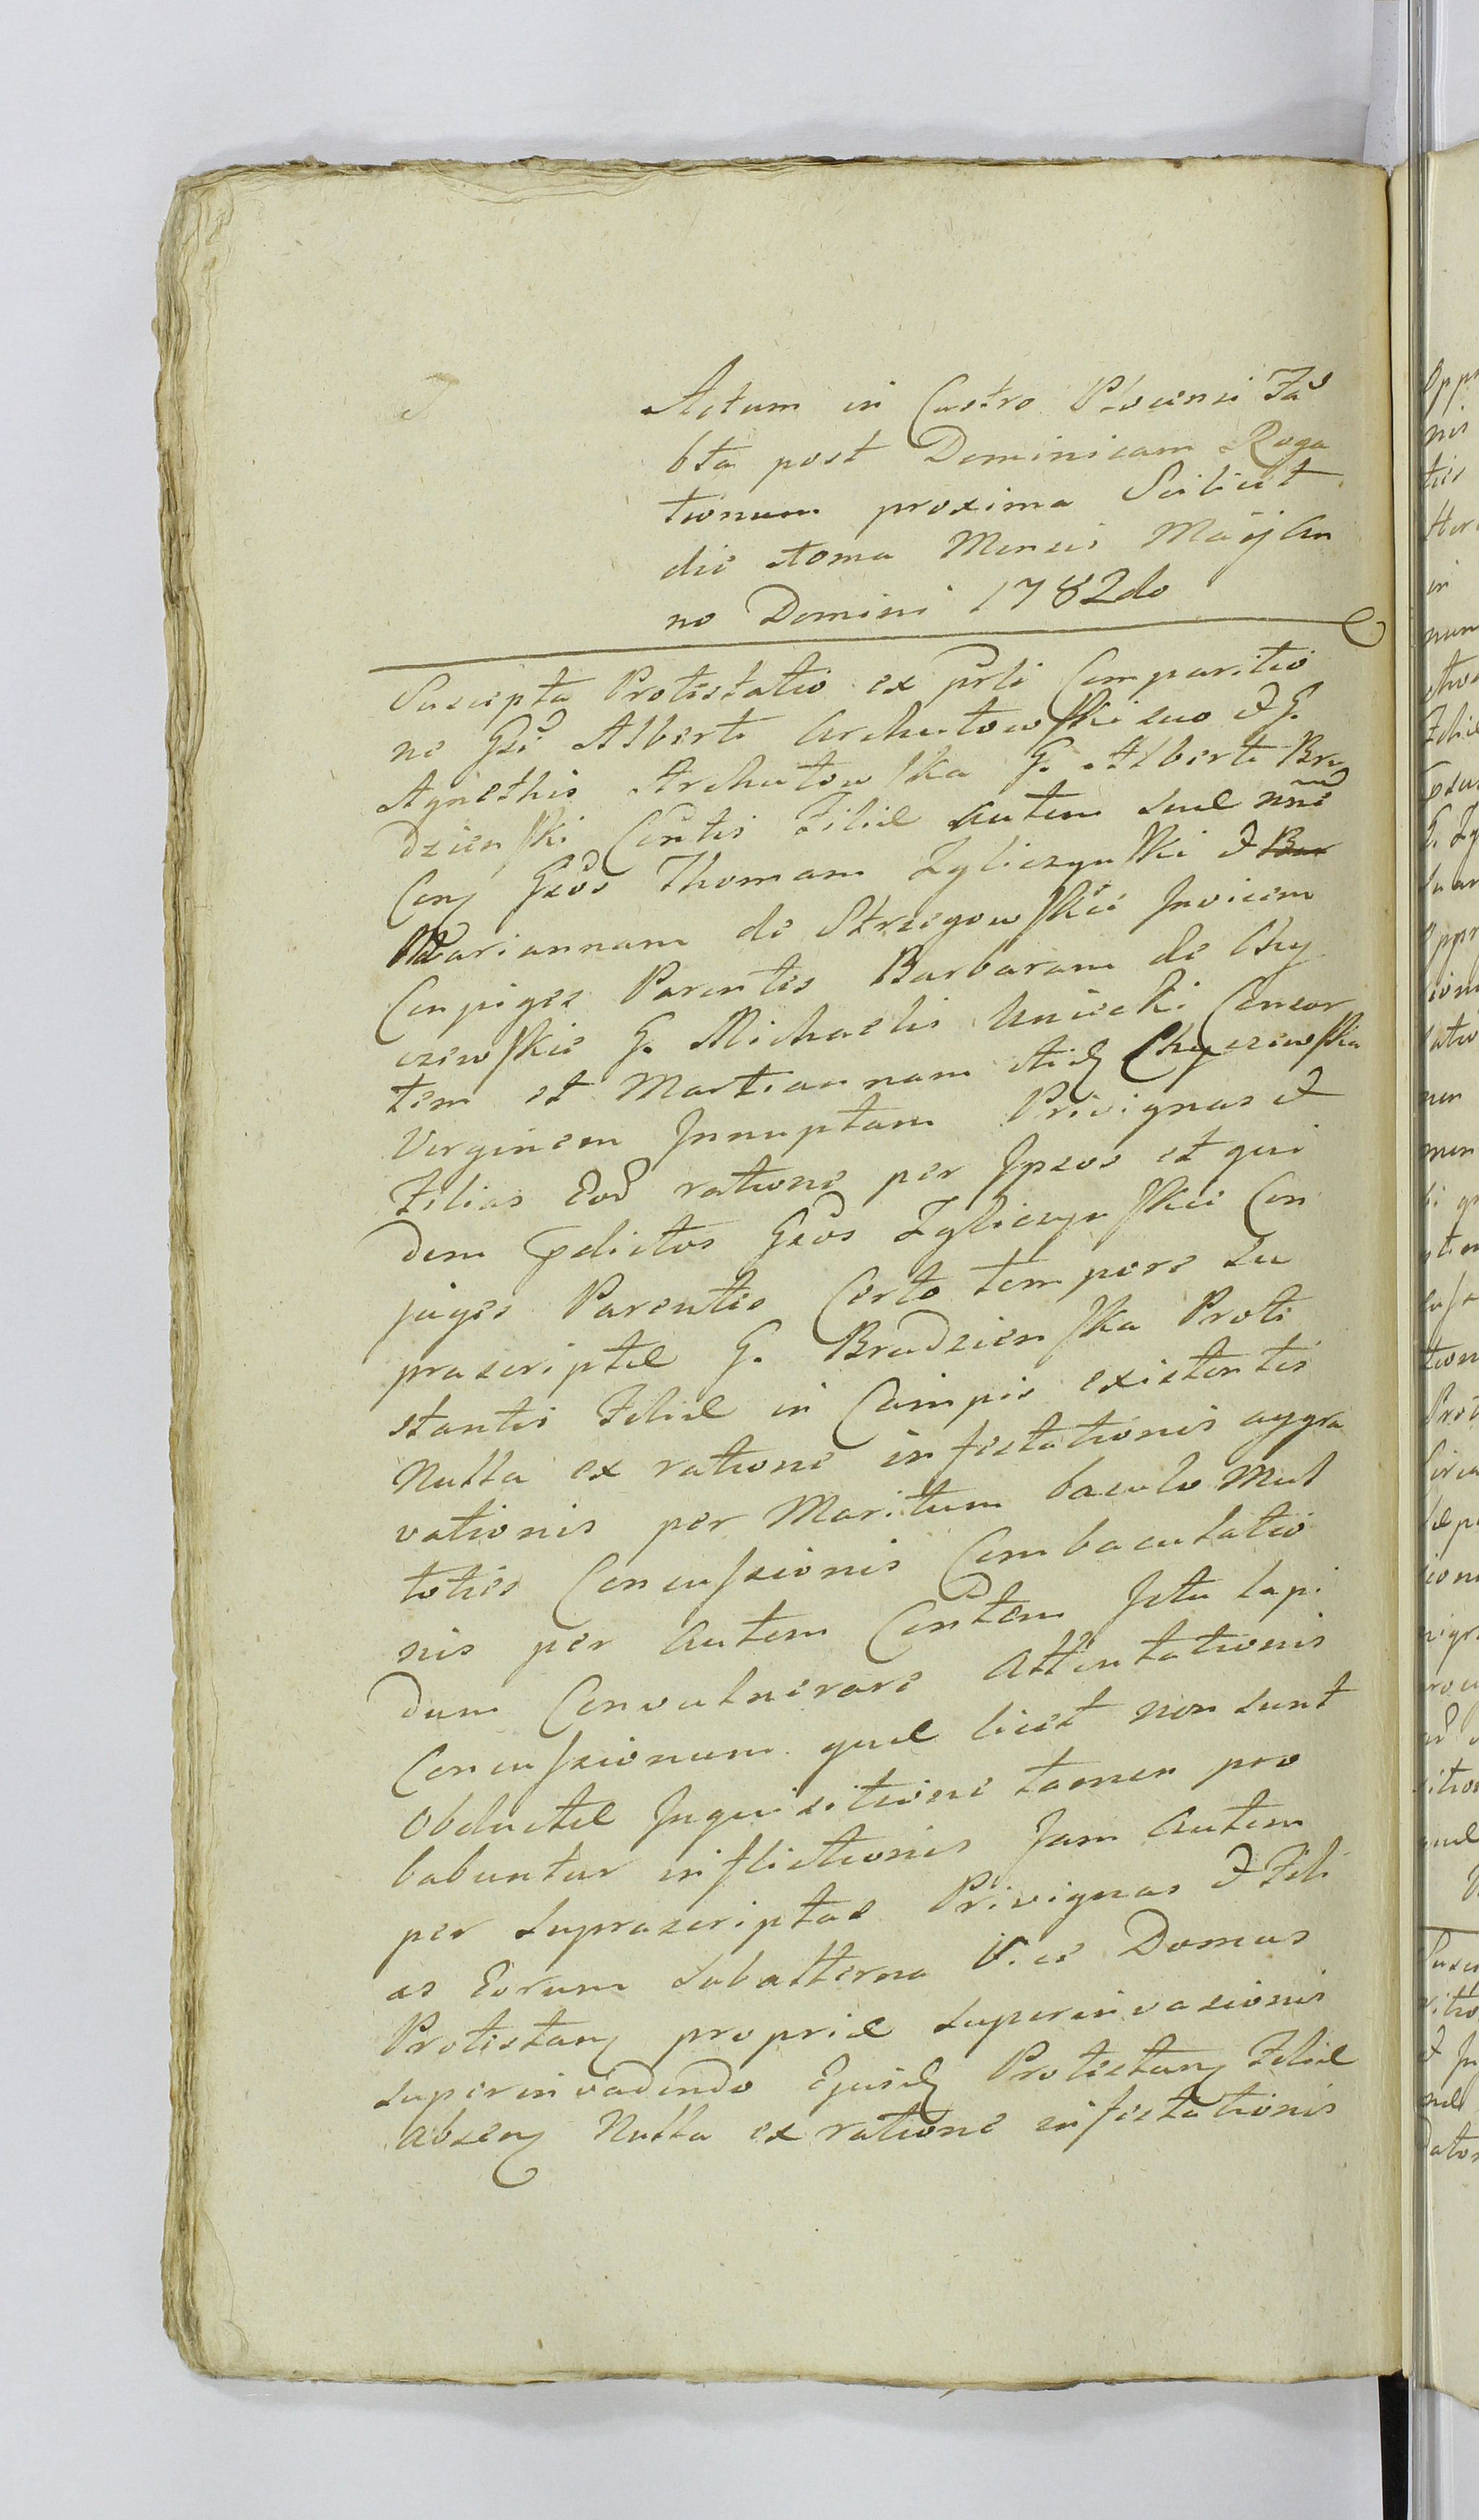 Actum in Castro Plocensi Fa
bta post Dominicam Roga
tionum proxima Scilicet
die 11ma Mensis Maij An
no Domini 1782do
Suscepta Protestatio ex prsti Comparitio
ne Gsi Alberti Archutowski suo et G.
Agnethis Archutowska G. Alberti Bru
dzienski Contis Filiæ autem suæ nñe
Conj Gsos Thomam Zgliczynski et
Mariannam de Strzegowskie Invicem
Conjuges Parentes Barbaram de Chy
czewskie G. Michaelis Unicki Consor
tem et Martiannam itid Chyczewska
Virginem Innuptam Privignas et
Filias Eod ratione per Ipsos et qui
dem pdictos Gsos Zgliczynskie Con
juges Parentes Certo tempore Su
prascriptæ G. Brudzienska Prote
stantis Filiæ in Campis existentis
Nulla ex ratione infestationis aggra
vationis per Maritum baculo Mul
toties Concussionis Combaculatio
nis per autem Contem Ictu lapi
dum Convulnerare attentationis
Concussionum quæ licet non sunt
Obductæ Inquisitione tamen pro
babuntur inflictionis Jam autem
per Suprascriptas Privignas et Fili
as Eorum Subalterna Vice Domus
Protestanj propriæ Superinvasionis
Superinvadendo Ejusd Protestanj Filiæ
absenj Nulla ex ratione infestationis